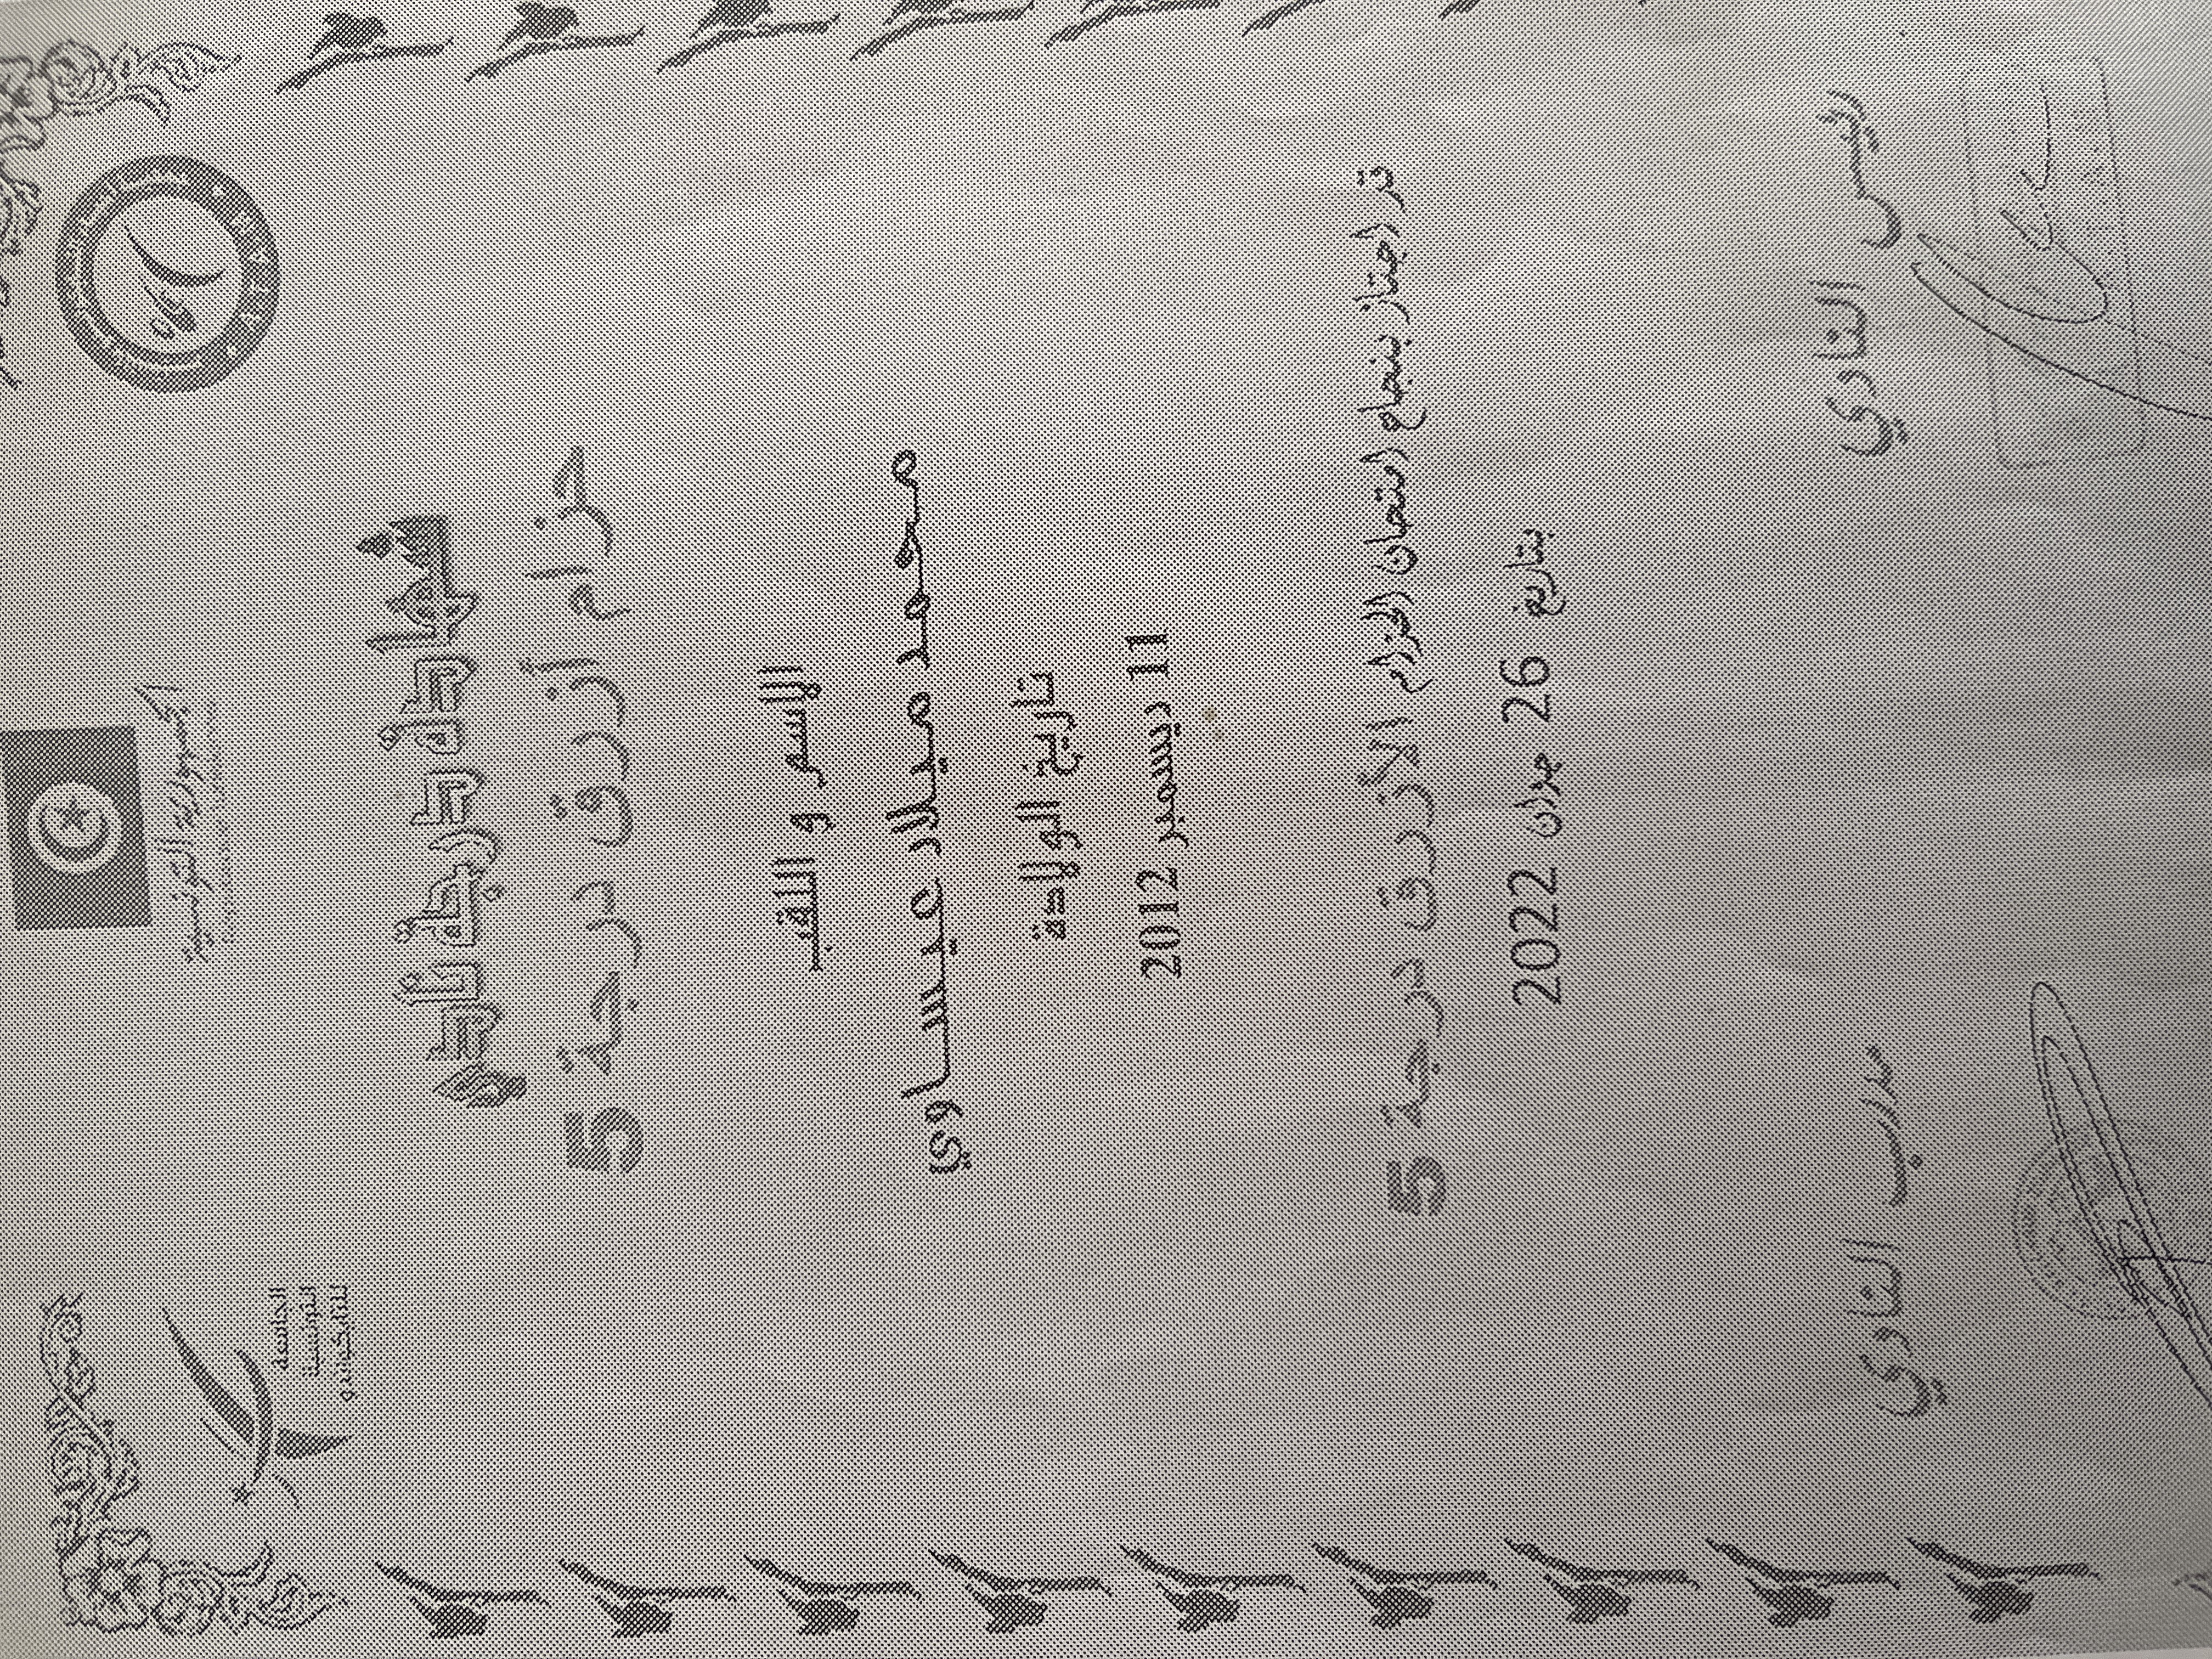 الجمهورية التونسية
الجامعة
التونسية
للتايكوندو
شهادة درجة الحزام
حزام أزرق درجة 5
الإسم و اللقب
محمد ميلاد عيساوي
تاريخ الولادة
11 ديسمبر 2012
قد إجتاز بنجاح إمتحان الحزام الأزرق درجة 5
بتاريخ 26 جوان 2022
رئيس النادي
مدرب النادي